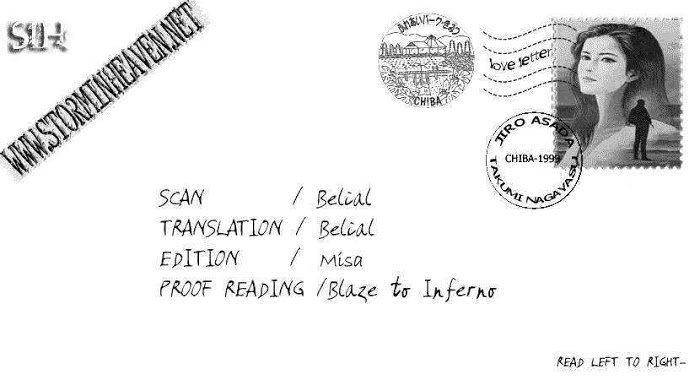 SIH
WWW.STORMINHEAVEN.NET
CHIBA
love letter
JIRO ASADA
CHIBA-1999
TAKUMI NAGAYASU
SCAN / Belial
TRANSLATION / Belial
EDITION / Misa
PROOF READING / Blaze to Inferno
READ LEFT TO RIGHT-